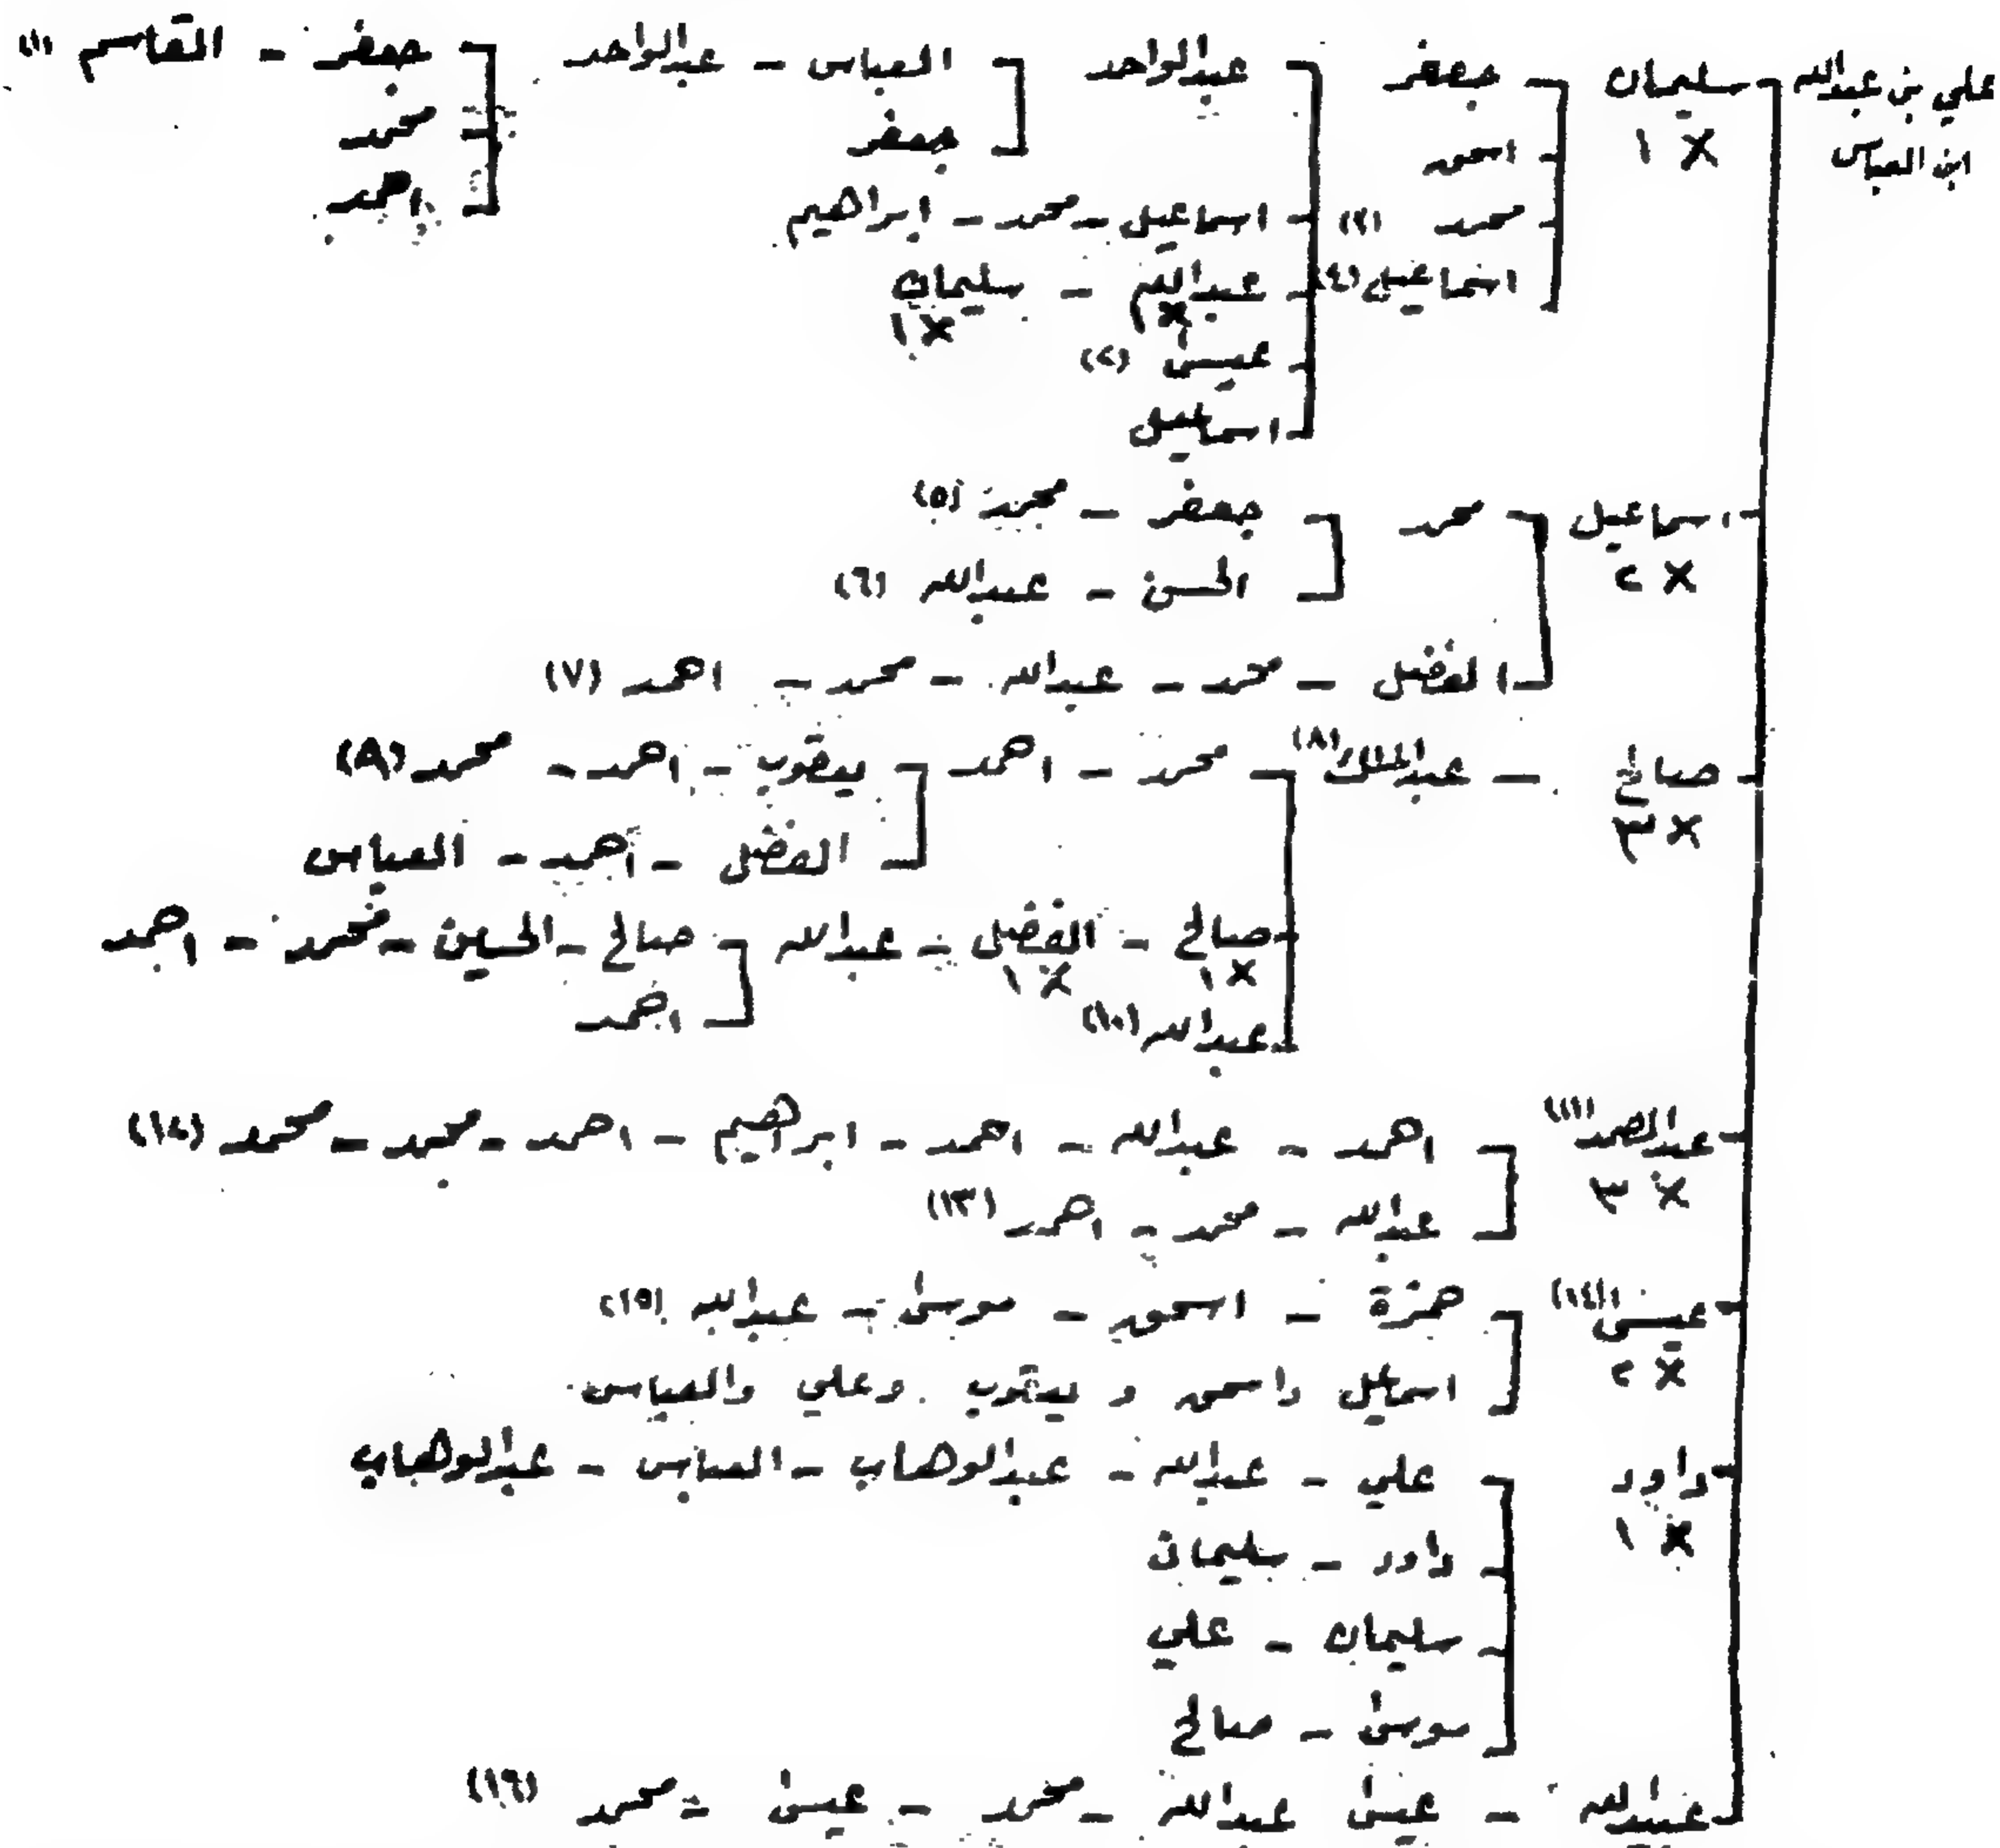 علي بن عبدالله سليمان جعفر عبدالواحد العباس - عبدالواحد جعفر - القاسم (١)
ابن العباس X ١ اسحق جعفر محمد
محمد (٣) اسماعيل - محمد - ابراهيم احمد
اسماعيل (٤) عبدالله - سليمان
X ١ X ١
عيسى (٢)
اسماعيل
اسماعيل محمد جعفر - محمد (٥)
X ٢ الحسن - عبدالله (٦)
الفضل - محمد - عبدالله - محمد - احمد (٧)
صالح - عبدالملك (٨) محمد - احمد يعقوب - احمد - محمد (٩)
X ٣ الفضل - احمد - العباس
صالح - الفضل - عبدالله صالح - الحسين - محمد - احمد
X ١ X ١ احمد
عبدالله (١٠)
عبدالصمد (١١) احمد - عبدالله - احمد - ابراهيم - احمد - محمد - محمد (١٢)
X ٣ عبدالله - محمد - احمد (١٣)
عيسى (١٤) حمزة - اسحق - موسى - عبدالله (١٥)
X ٢ اسماعيل واسحق و يعقوب وعلي والعباس
داود علي - عبدالله - عبدالوهاب - العباس - عبدالوهاب
X ١ داود - سليمان
سليمان - علي
موسى - صالح
عبدالله - عيسى عبدالله - محمد - عيسى - محمد (١٦)